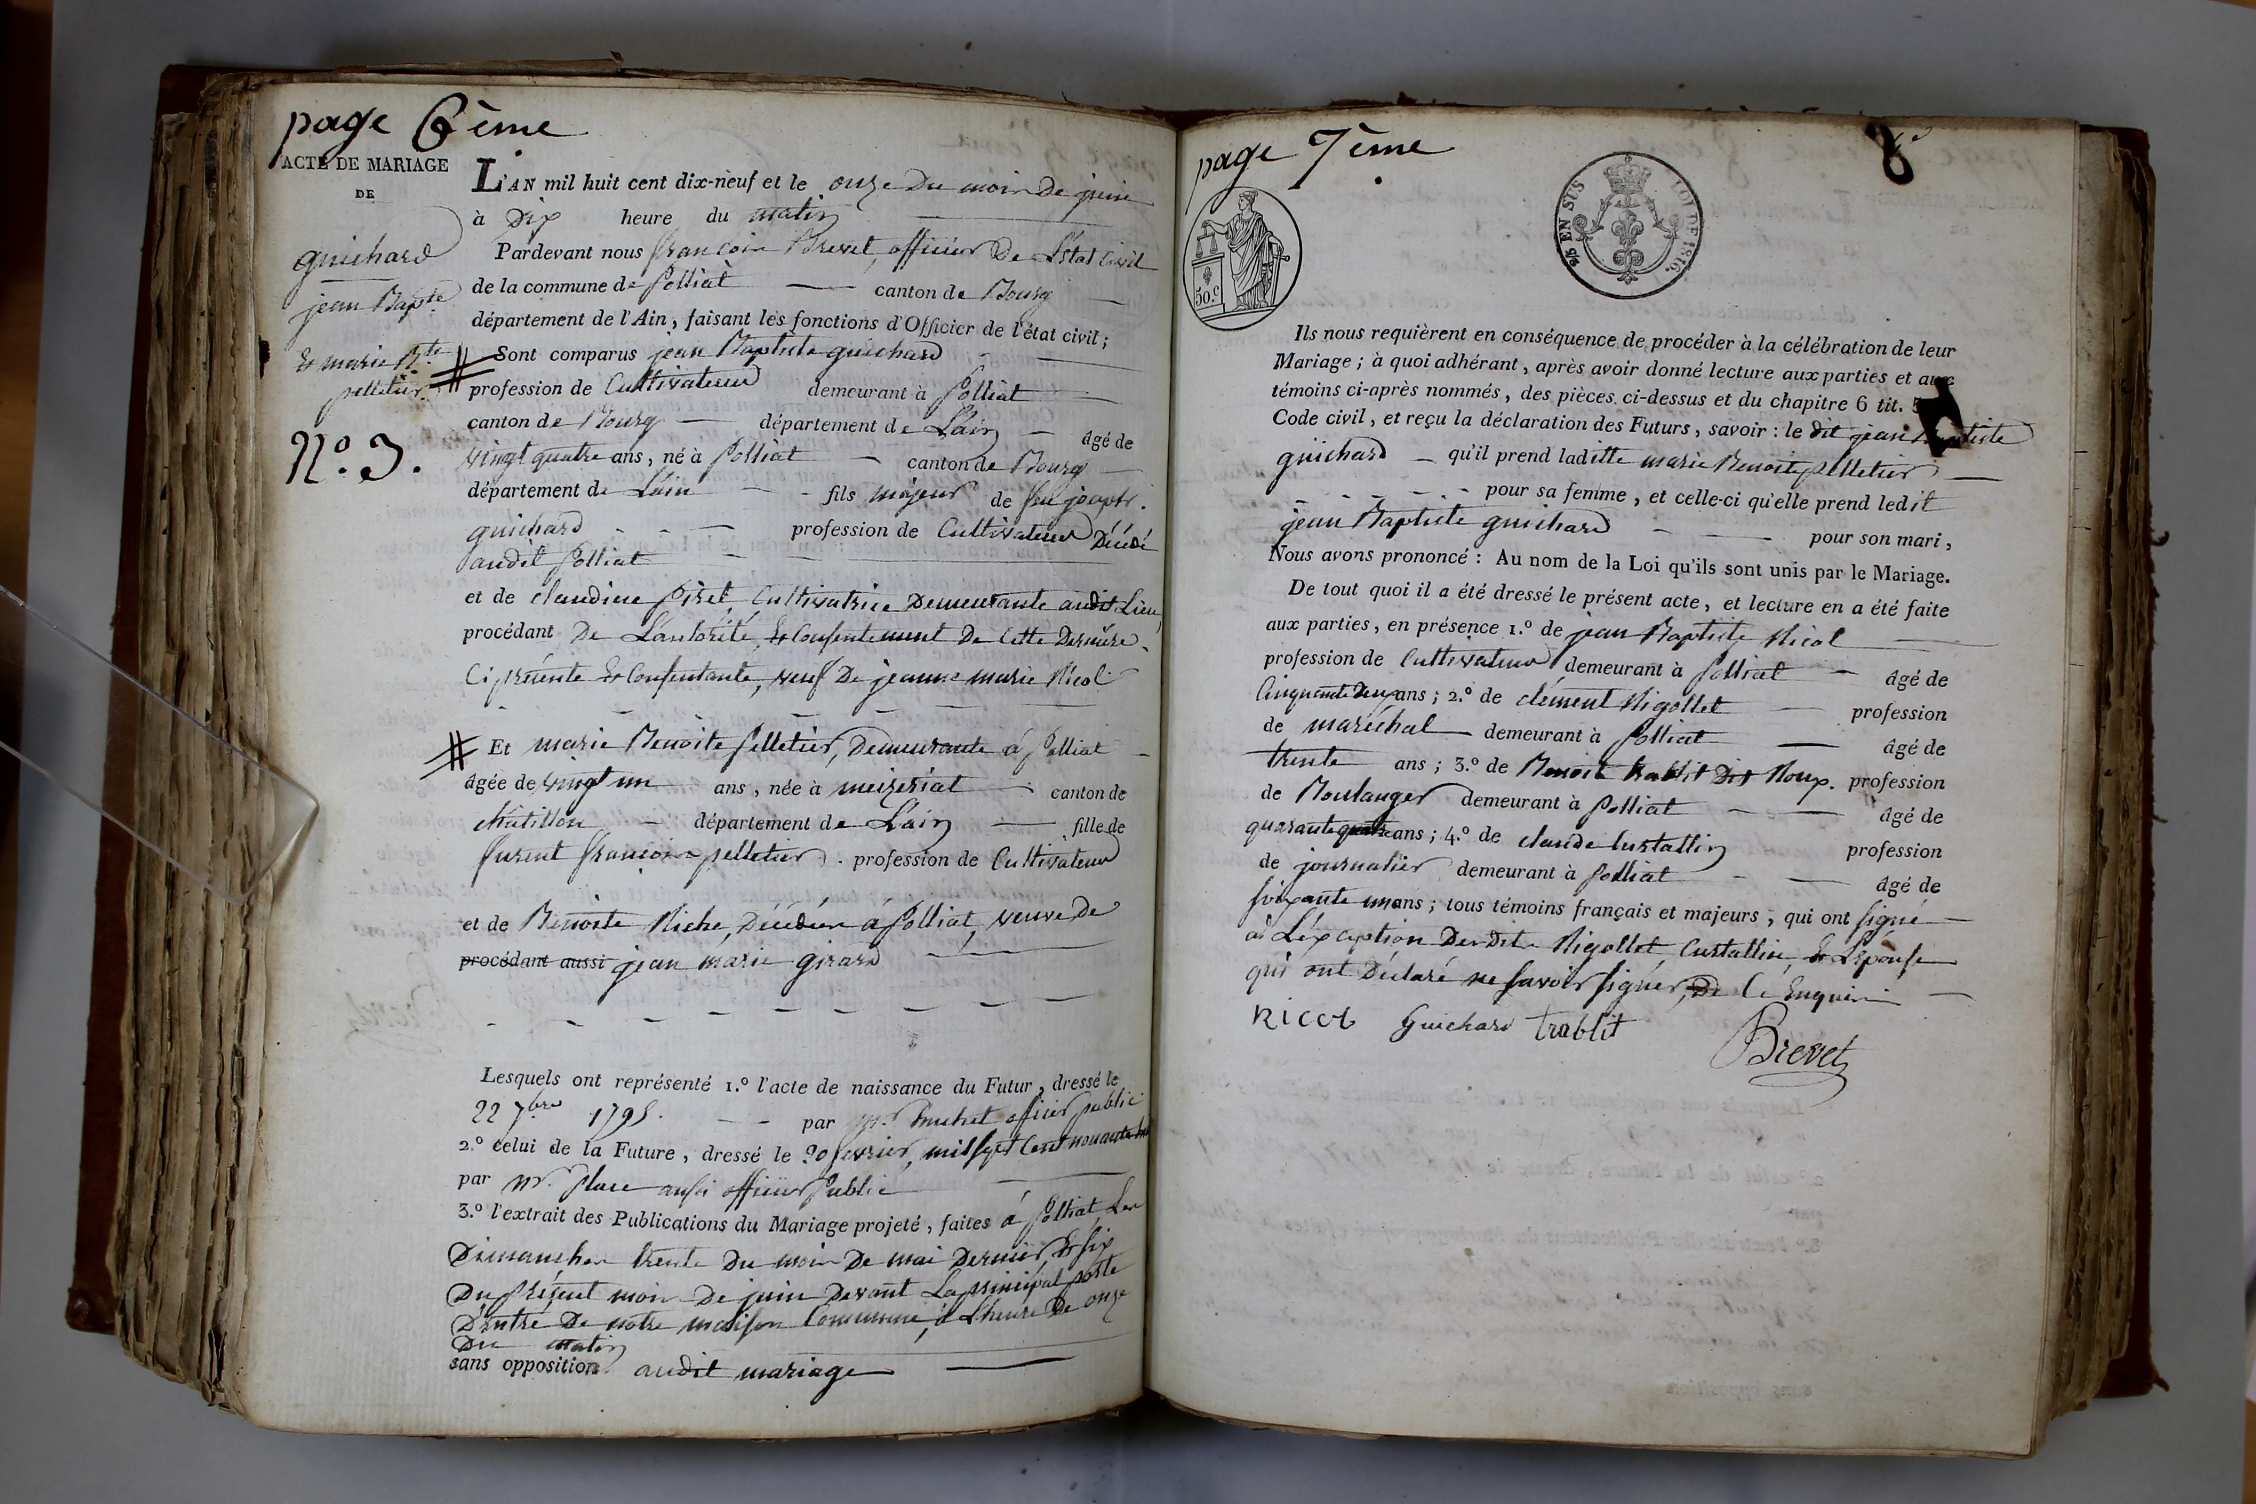 page 6ème
ACTE DE MARIAGE
DE
guichard
jean Bapte
& marie Bte
pelletier.
N.º 3.
L'AN mil huit cent dix-neuf et le onze du mois de juin
à Dix heure du matin
Pardevant nous françois Brevet, officier De L'état Civil
de la commune de Polliat canton de Bourg
département de l'Ain, faisant les fonctions d'Officier de l'état civil;
Sont comparus jean Baptiste guichard
profession de Cultivateur demeurant à Polliat
canton de Bourg département de L'ain âgé de
vingt quatre ans, né à Polliat canton de Bourg
département de L'ain fils majeur de feu
guichard profession de Cultivateur Décédé
audit Polliat
et de claudine Piret, Cultivatrice Demeurante audit Lieu,
procédant De L'autorité, & Consentement De Cette Dernière
Ci présente & Consentante, veuf De jeanne marie Nicol
Et marie Benoite Pelletier, Demeurante à Polliat
âgée de vingt un ans, née à meizeriat canton de
châtillon département de L'ain fille de
furent françois pelletier profession de Cultivateur
et de Benoite Riche, Décédés à Polliat, veuve de
procédant aussi jean marie girard
Lesquels ont représenté 1.º l'acte de naissance du Futur, dressé le
22 7bre 1795. par mr. officier public
2.º celui de la Future, dressé le 20 fevrier, mil sept Cent nonante huit
par mr. Place aussi officier Public
3.º l'extrait des Publications du Mariage projeté, faites à Polliat Les
Dimanches trente Du mois De mai Dernier & six
Du présent mois De juin Devant La principal porte
D'entré De notre maison Commune, à L'heure De onze
Du matin
sans opposition audit mariage
page 7ème
8e
50.c
EN SUS LOI DE 1816.
Ils nous requièrent en conséquence de procéder à la célébration de leur
Mariage; à quoi adhérant, après avoir donné lecture aux parties et aux
témoins ci-après nommés, des pièces ci-dessus et du chapitre 6 tit. 5
Code civil, et reçu la déclaration des Futurs, savoir: le dit jean Baptiste
guichard qu'il prend laditte marie Benoite pelletier
pour sa femme, et celle-ci qu'elle prend ledit
jean Baptiste guichard pour son mari,
Nous avons prononcé: Au nom de la Loi qu'ils sont unis par le Mariage.
De tout quoi il a été dressé le présent acte, et lecture en a été faite
aux parties, en présence 1.º de jean Baptiste Nicol
profession de Cultivateur demeurant à Polliat âgé de
Cinquante Deux ans; 2.º de clément Rigollet profession
de maréchal demeurant à Polliat âgé de
trente ans; 3.º de Benoit trablit Dit Roux. profession
de Boulanger demeurant à Polliat âgé de
quarante quatre ans; 4.º de claude Curtallin profession
de journalier demeurant à Polliat âgé de
soixante un ans; tous témoins français et majeurs, qui ont signé
à L'exception Desdits Rigollet, Curtallin, & L'épouse
qui ont Déclaré ne savoir signer, De Ce Enquis
Nicol Guichard trablit
Brevet